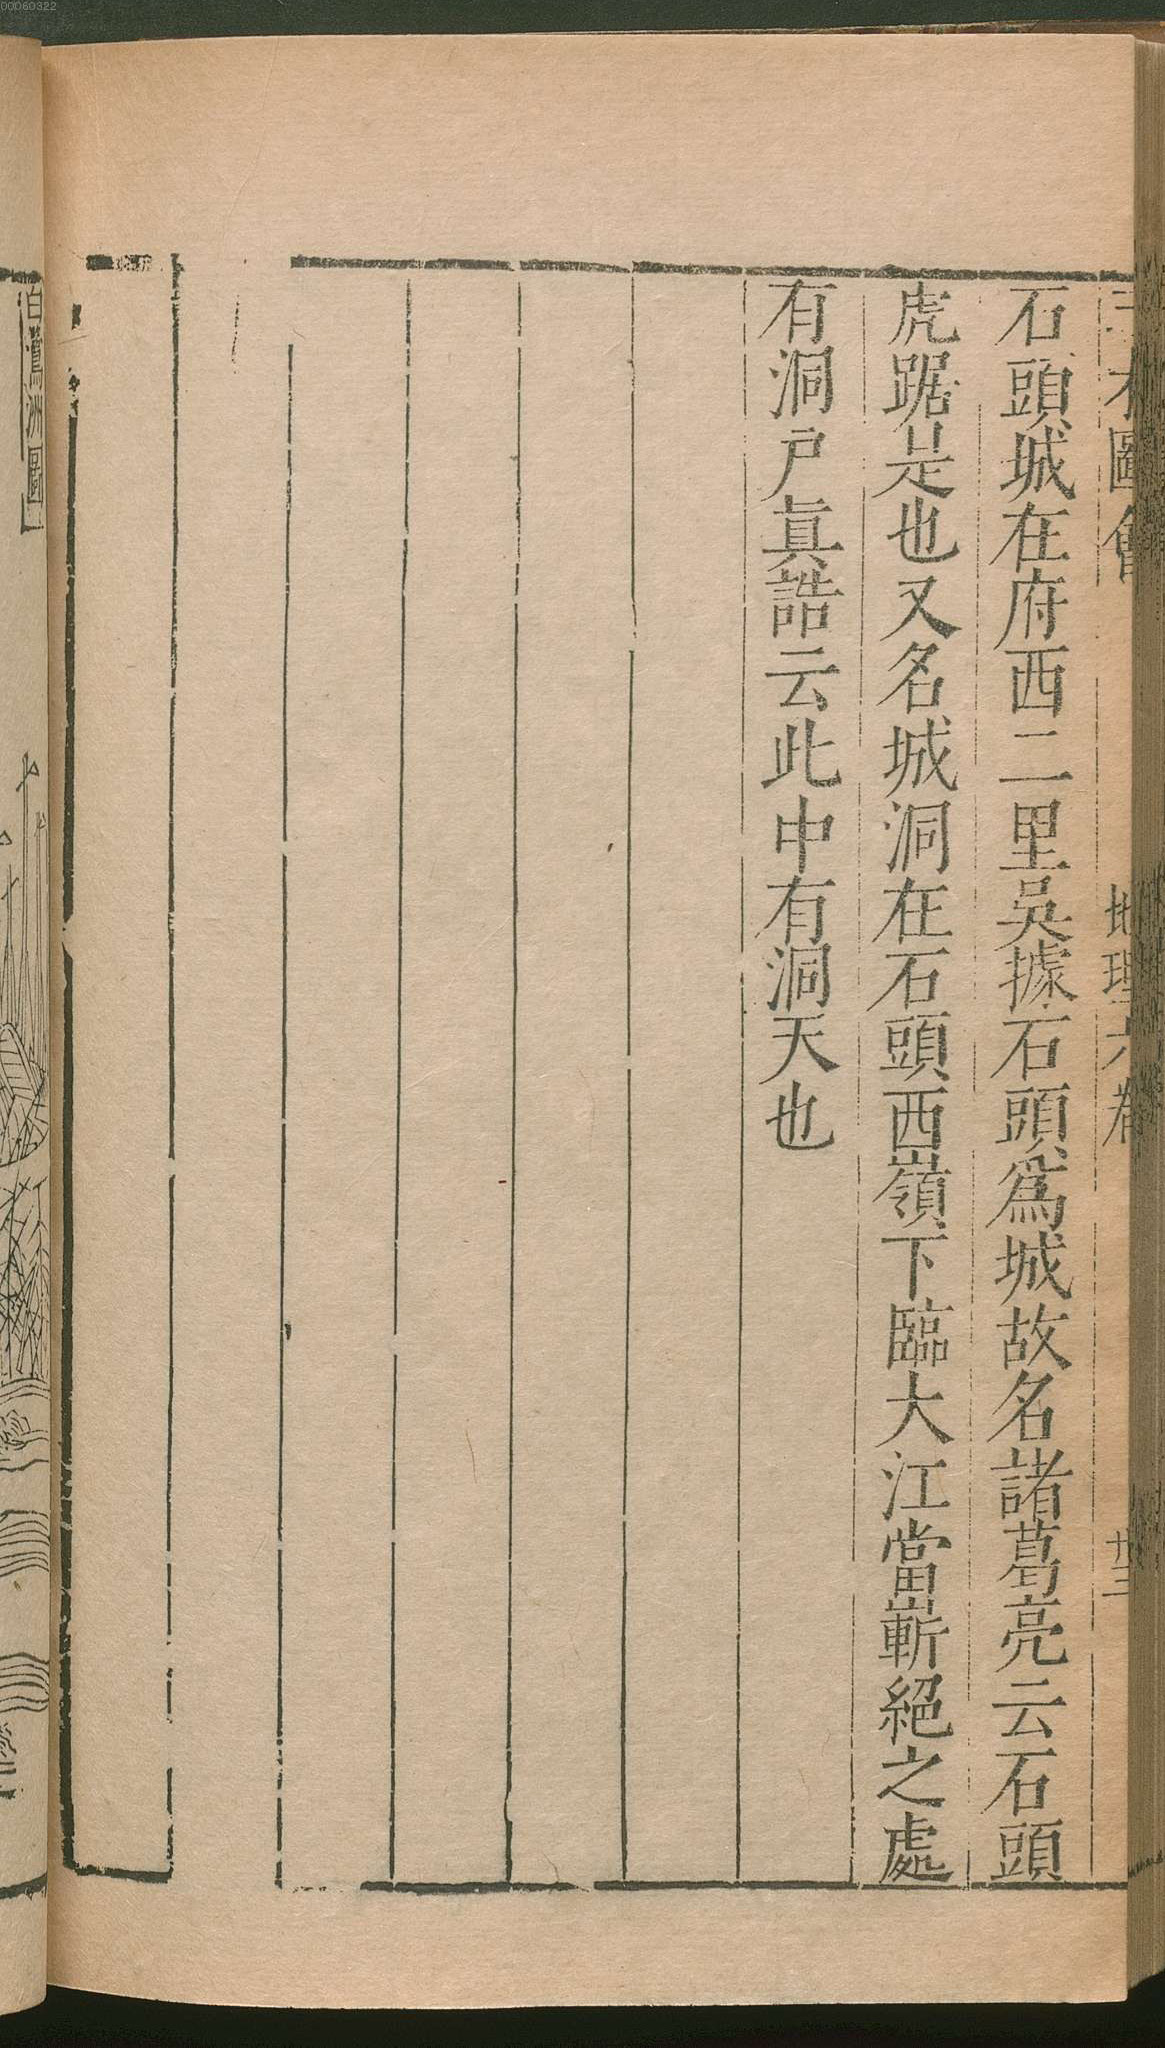 00060322
三才圖會 地理六卷 廿三
石頭城在府西二里吳據石頭爲城故名諸葛亮云石頭
虎踞是也又名城洞在石頭西嶺下臨大江當嶄絕之處
有洞戸眞誥云此中有洞天也
白鷺洲圖